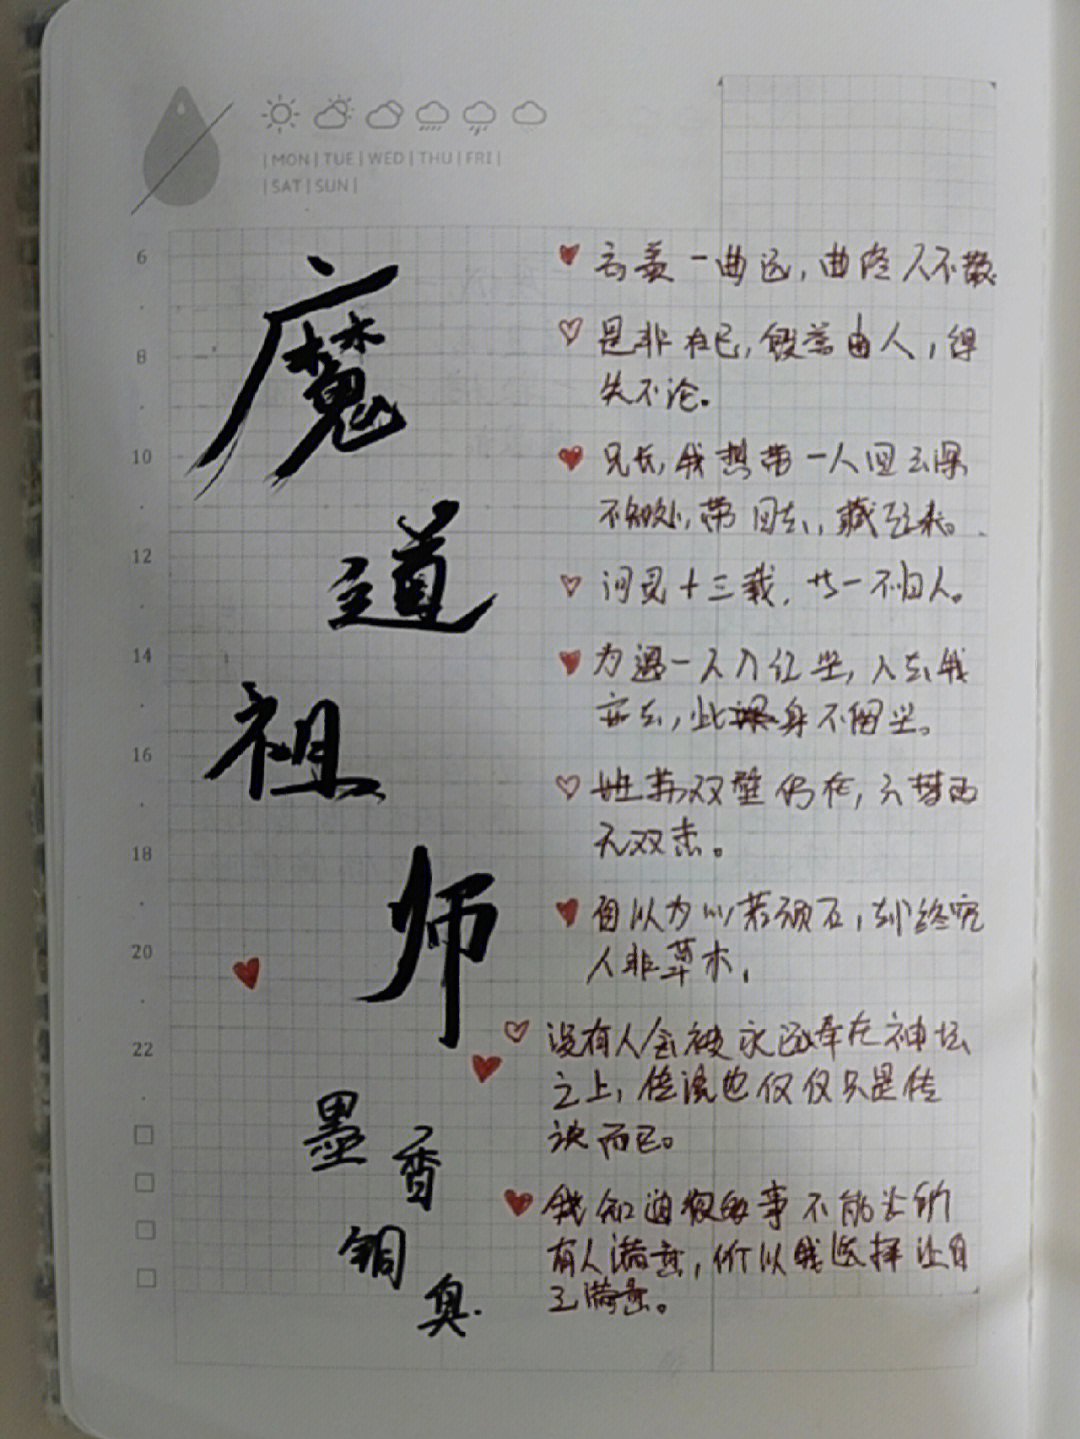 MON | TUE | WED | THU | FRI |
| SAT | SUN |
6
8
10
12
14
16
18
20
22
魔
道
祖
师
墨
香
铜
臭.
忘羡一曲远,曲终人不散
是非在己,毁誉由人,得
失不论。
兄长,我想带一人回云深
不知处,带回去,藏起来。
问灵十三载,一不归人。
为遇一人入红尘,人去我
亦去,此身不留尘。
双璧仍在,云梦再
无双杰。
自以为心若顽石,到终究
人非草木,
没有人会被永远奉在神坛
之上,传说也仅仅只是传
说而已。
我知道我的事不能让所
有人满意,所以我选择让自
己满意。